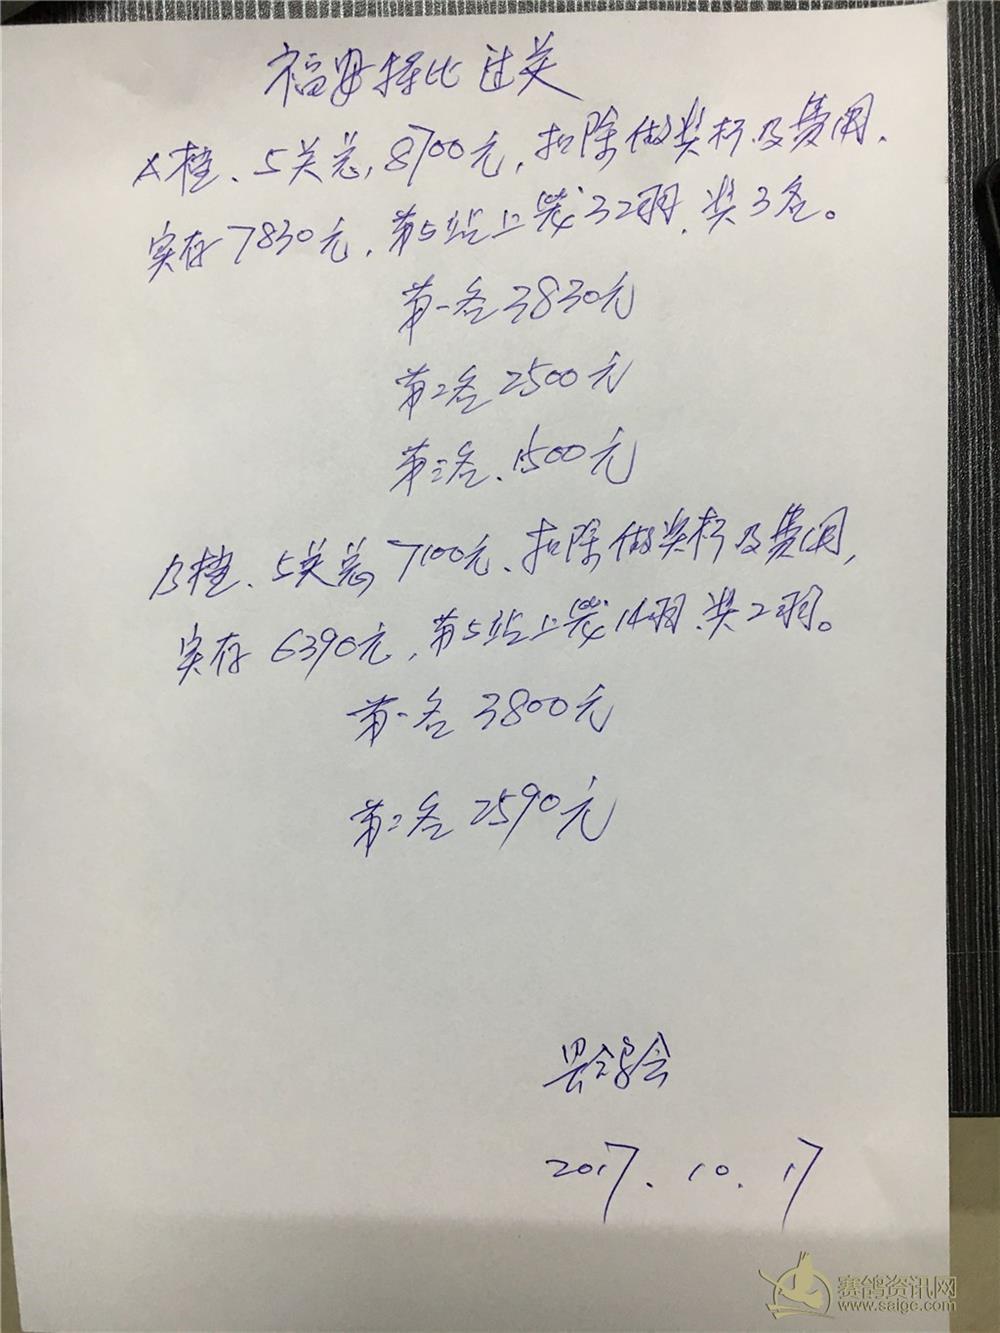 福母择比过关
A档、5关总,8700元,扣除做奖杯及费用,
实存7830元,第5站上笼32羽,奖3名。
第一名3830元
第2名2500元
第三名、1500元
B档、5关总7100元、扣除做奖杯及费用,
实存6390元,第5站上笼14羽、奖2羽。
第一名3800元
第二名2590元
县鸽会
2017.10.17
赛鸽资讯网
www.saigc.com